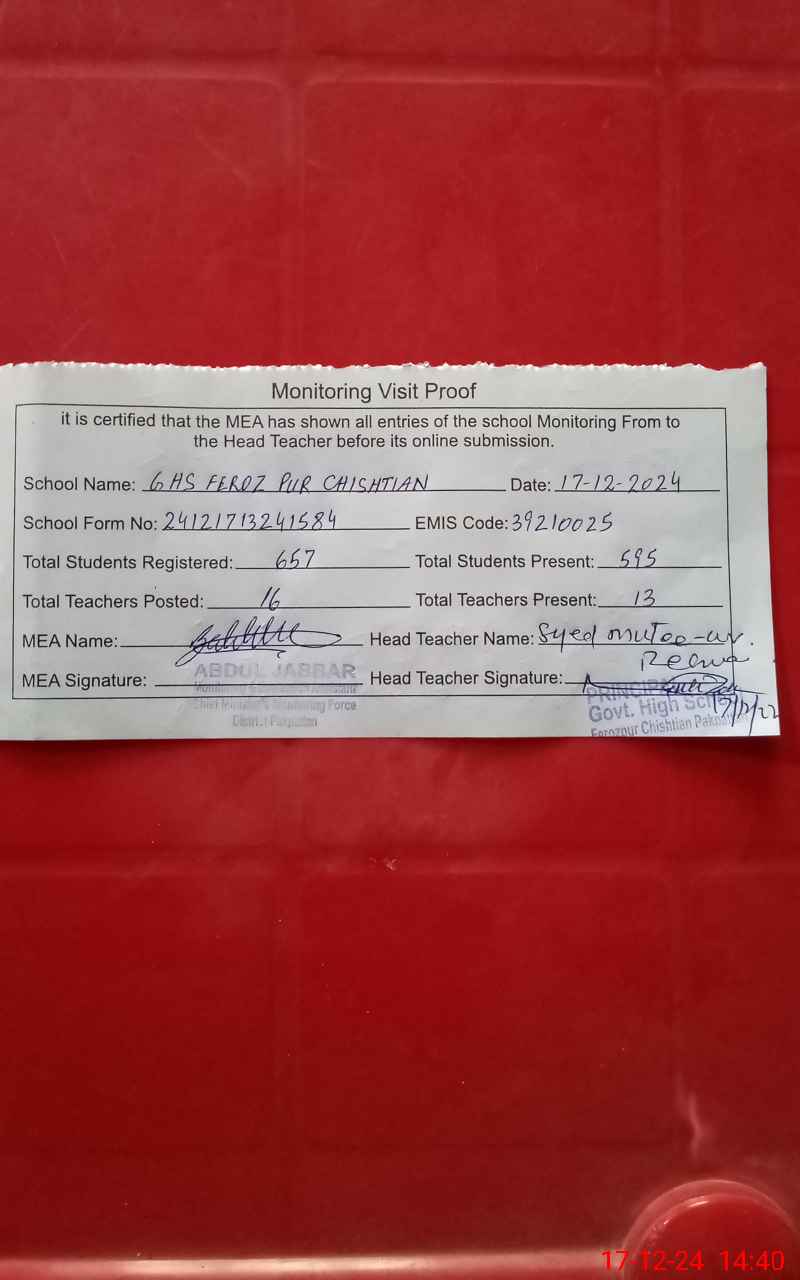 Monitoring Visit Proof
it is certified that the MEA has shown all entries of the school Monitoring From to
the Head Teacher before its online submission.
School Name: GHS FEROZ PUR CHISHTIAN Date: 17-12-2024
School Form No: 24121713241584 EMIS Code: 39210025
Total Students Registered: 657 Total Students Present: 595
Total Teachers Posted: 16 Total Teachers Present: 13
MEA Name: Head Teacher Name: Syed mutee-ur.
MEA Signature: Head Teacher Signature:
ABDUL JABBAR
Monitoring & Evaluation Assistant
Chief Minister's Monitoring Force
District Pakpattan
PRINCIPAL
Govt. High
Ferozpur Chishtian
17-12-24 14:40